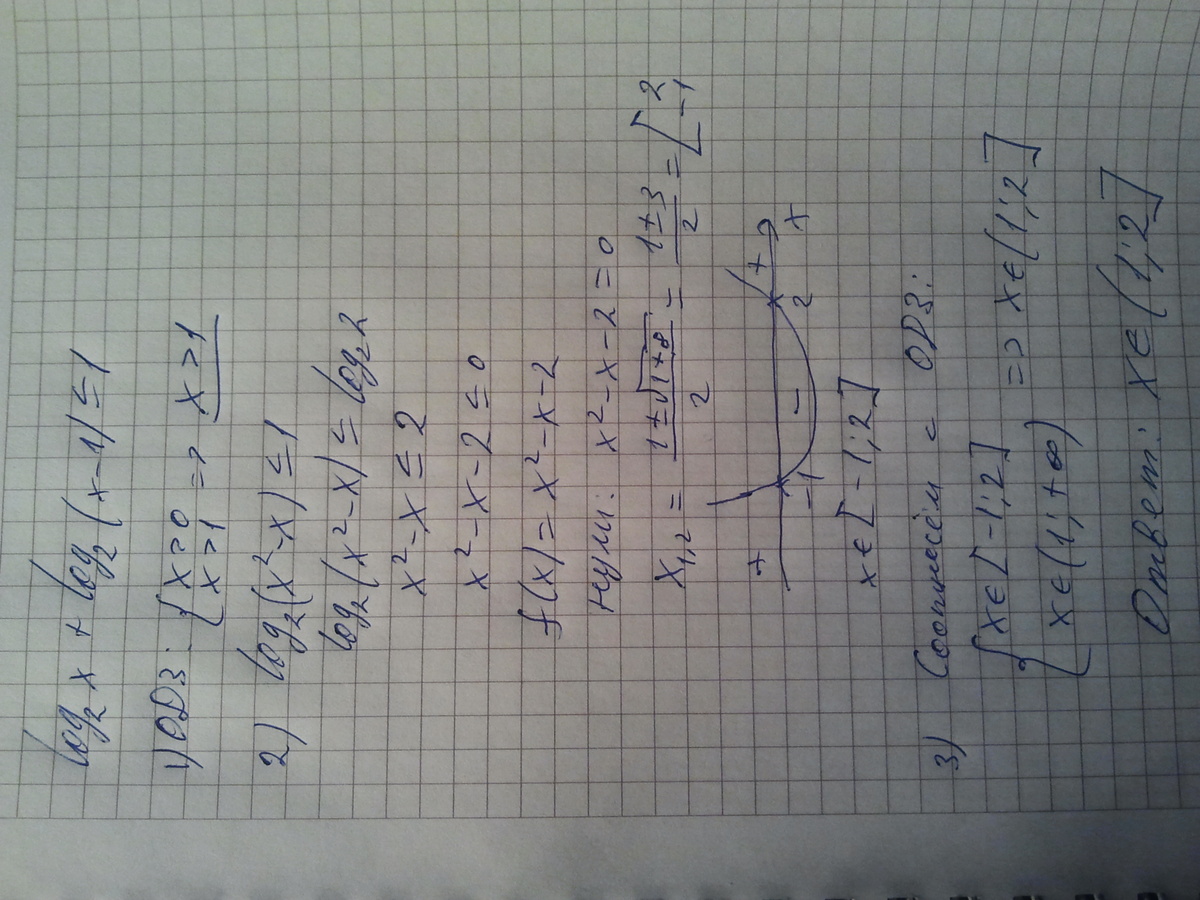 log₂ x + log₂ (x-1) ≤ 1
1) ОДЗ: { x > 0
x > 1 => x > 1
2) log₂ (x² - x) ≤ 1
log₂ (x² - x) ≤ log₂ 2
x² - x ≤ 2
x² - x - 2 ≤ 0
f(x) = x² - x - 2
нули: x² - x - 2 = 0
x₁,₂ = (1 ± √(1+8))/2 = (1 ± 3)/2 = [ 2
-1
+ - +
-1 2 x
x ∈ [-1; 2]
3) Соотнесём с ОДЗ:
{ x ∈ [-1; 2]
x ∈ (1; +∞) => x ∈ (1; 2]
Ответ: x ∈ (1; 2]